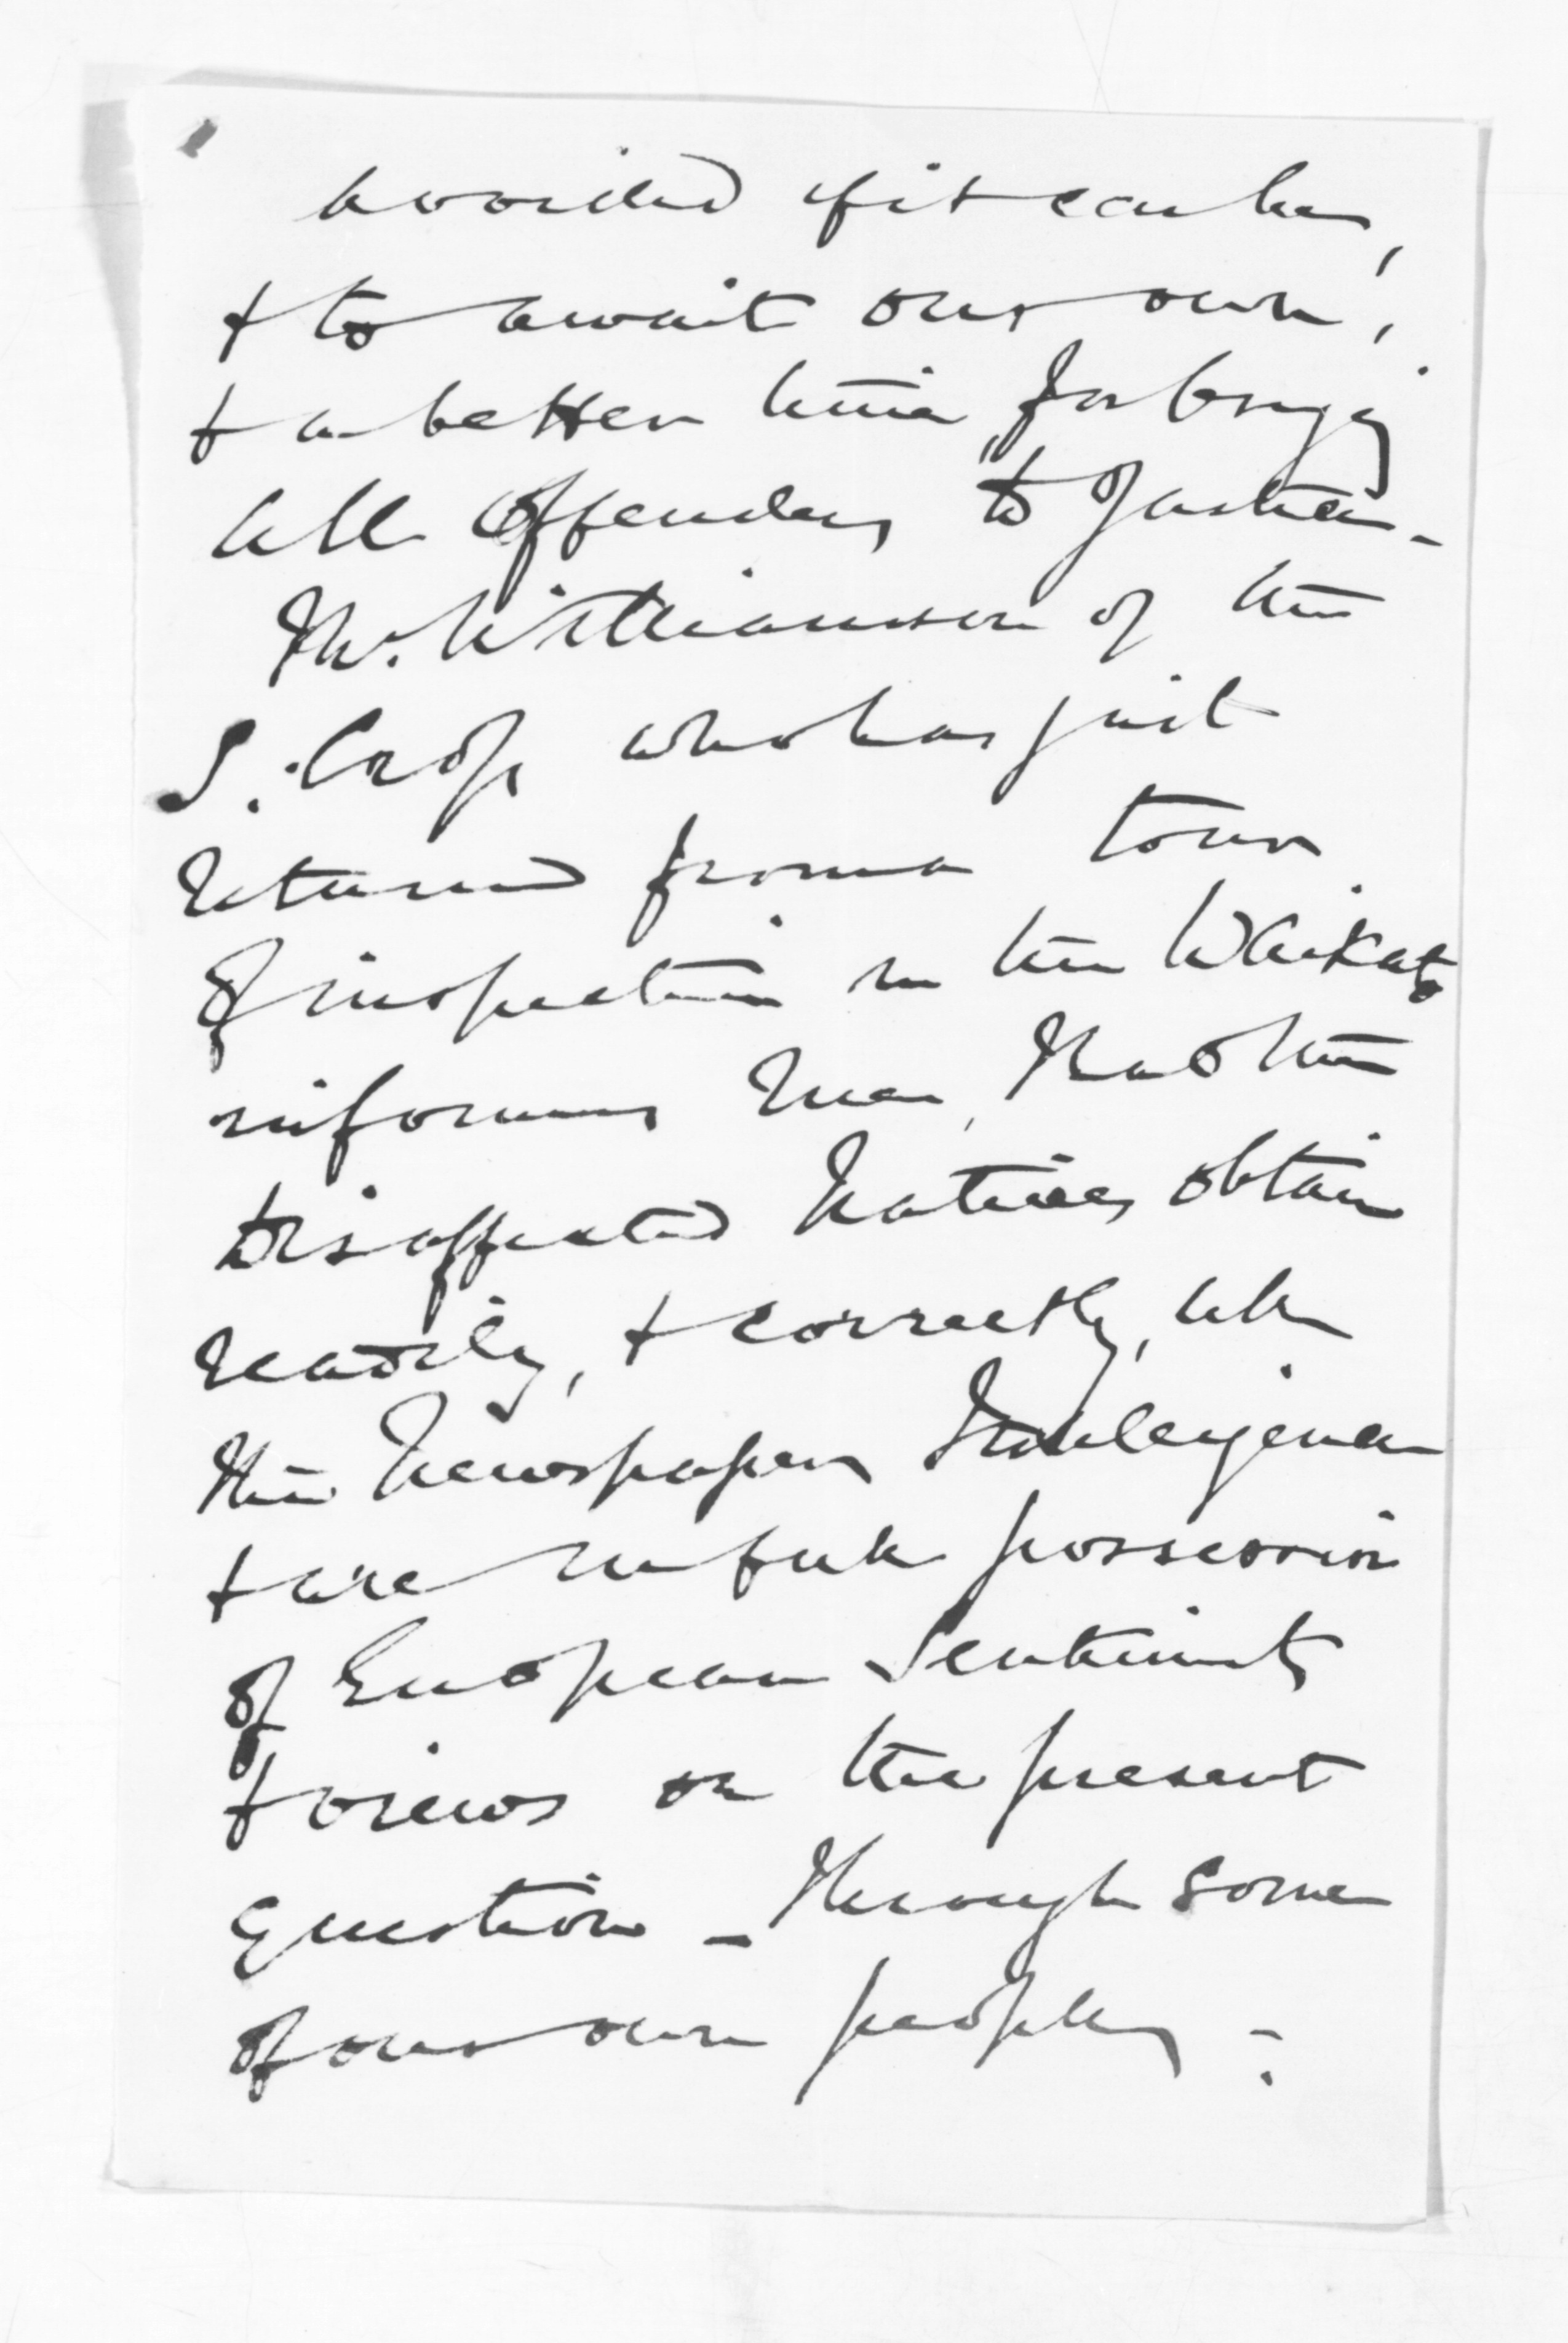 avoided if it can be,
& to await our own,
& a better time, for bringing
all offenders to Justice -
Mr. Williamson of the
S. Cross who has just
returned from a tour
of inspection in the Waikato
informs me, that the
disaffected Natives obtain
readily, & correctly, all
the Newspaper Intelligence
& are in full possession
of European Sentiments
& views on the present
question - through some
of our own people -